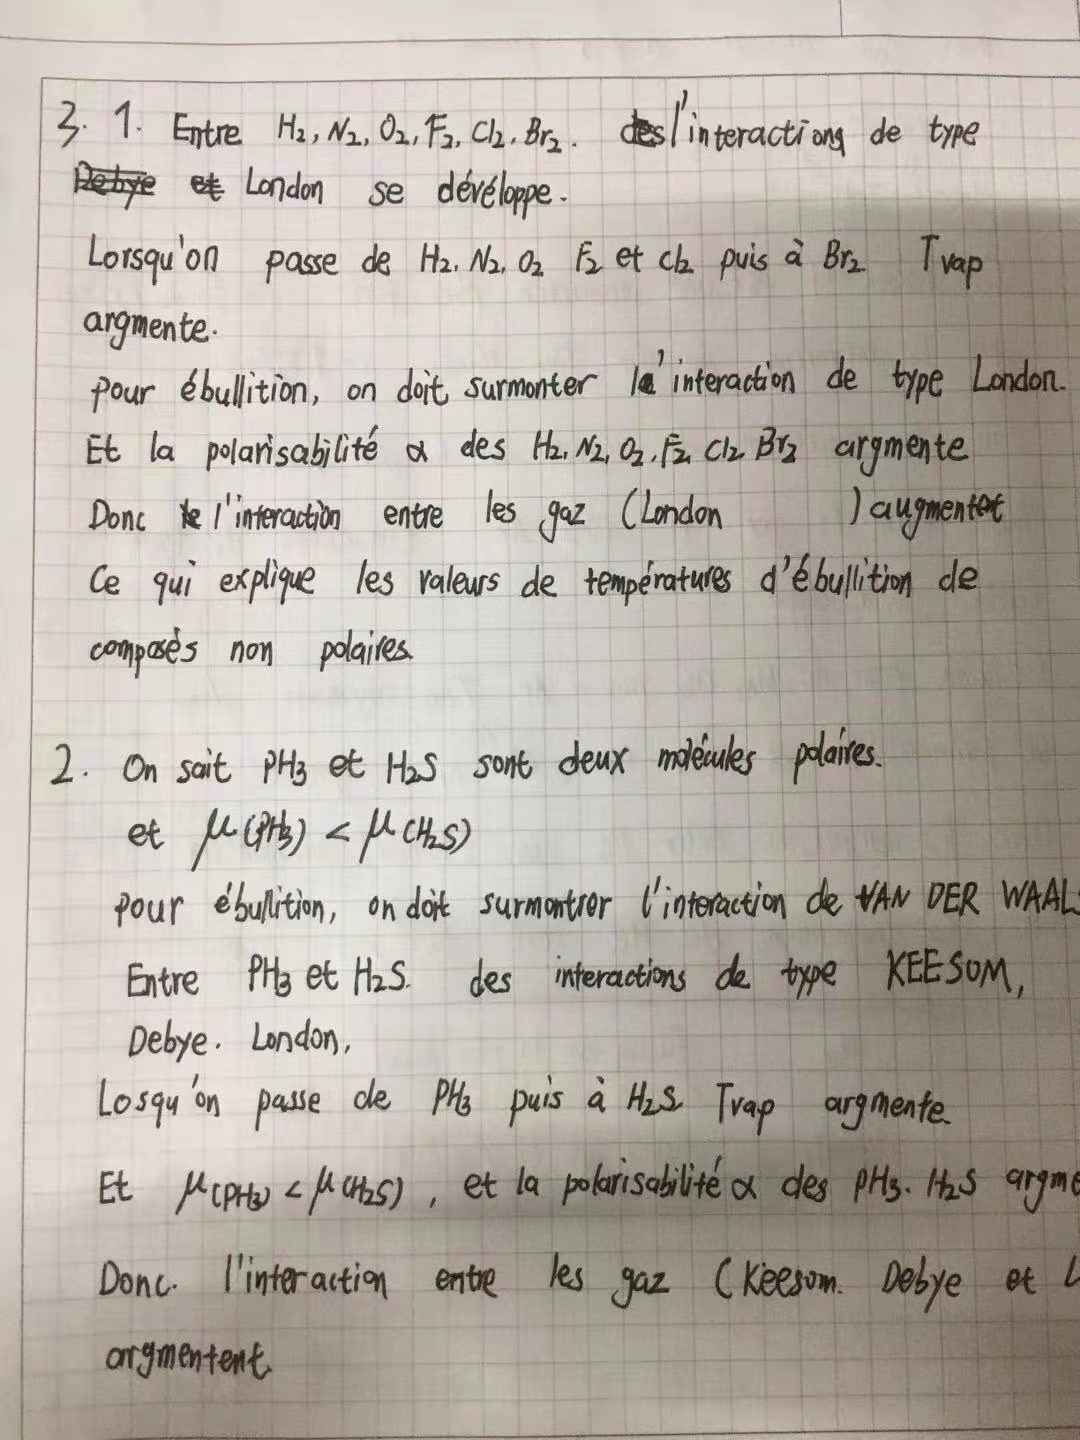 3. 1. Entre H₂, N₂, O₂, F₂, Cl₂, Br₂. l'interactions de type
London se dévéloppe.
Lorsqu'on passe de H₂, N₂, O₂ F₂ et Cl₂ puis à Br₂ Tvap
argmente.
pour ébullition, on doit surmonter l'interaction de type London.
Et la polarisabilité α des H₂, N₂, O₂, F₂, Cl₂ Br₂ argmente
Donc l'interaction entre les gaz (London ) augmentet
Ce qui explique les valeurs de températures d'ébullition de
composés non polaires
2. On sait PH₃ et H₂S sont deux molécules polaires.
et μ(PH₃) < μ(H₂S)
pour ébullition, on doit surmontrer l'interaction de VAN DER WAALS
Entre PH₃ et H₂S. des interactions de type KEESOM,
Debye. London,
Losqu'on passe de PH₃ puis à H₂S Tvap argmente.
Et μ(PH₃) < μ(H₂S), et la polarisabilité α des PH₃. H₂S argme
Donc. l'interaction entre les gaz (Keesom. Debye et L
argmentent